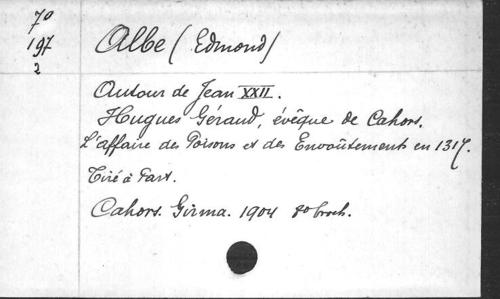 70
197
2
Albe (Edmond)
Autour de Jean XXII.
Hugues Géraud, évêque de Cahors.
L'affaire des Poisons et des Envoûtements en 1317.
Tiré à Part.
Cahors. Girma. 1904 8º broch.